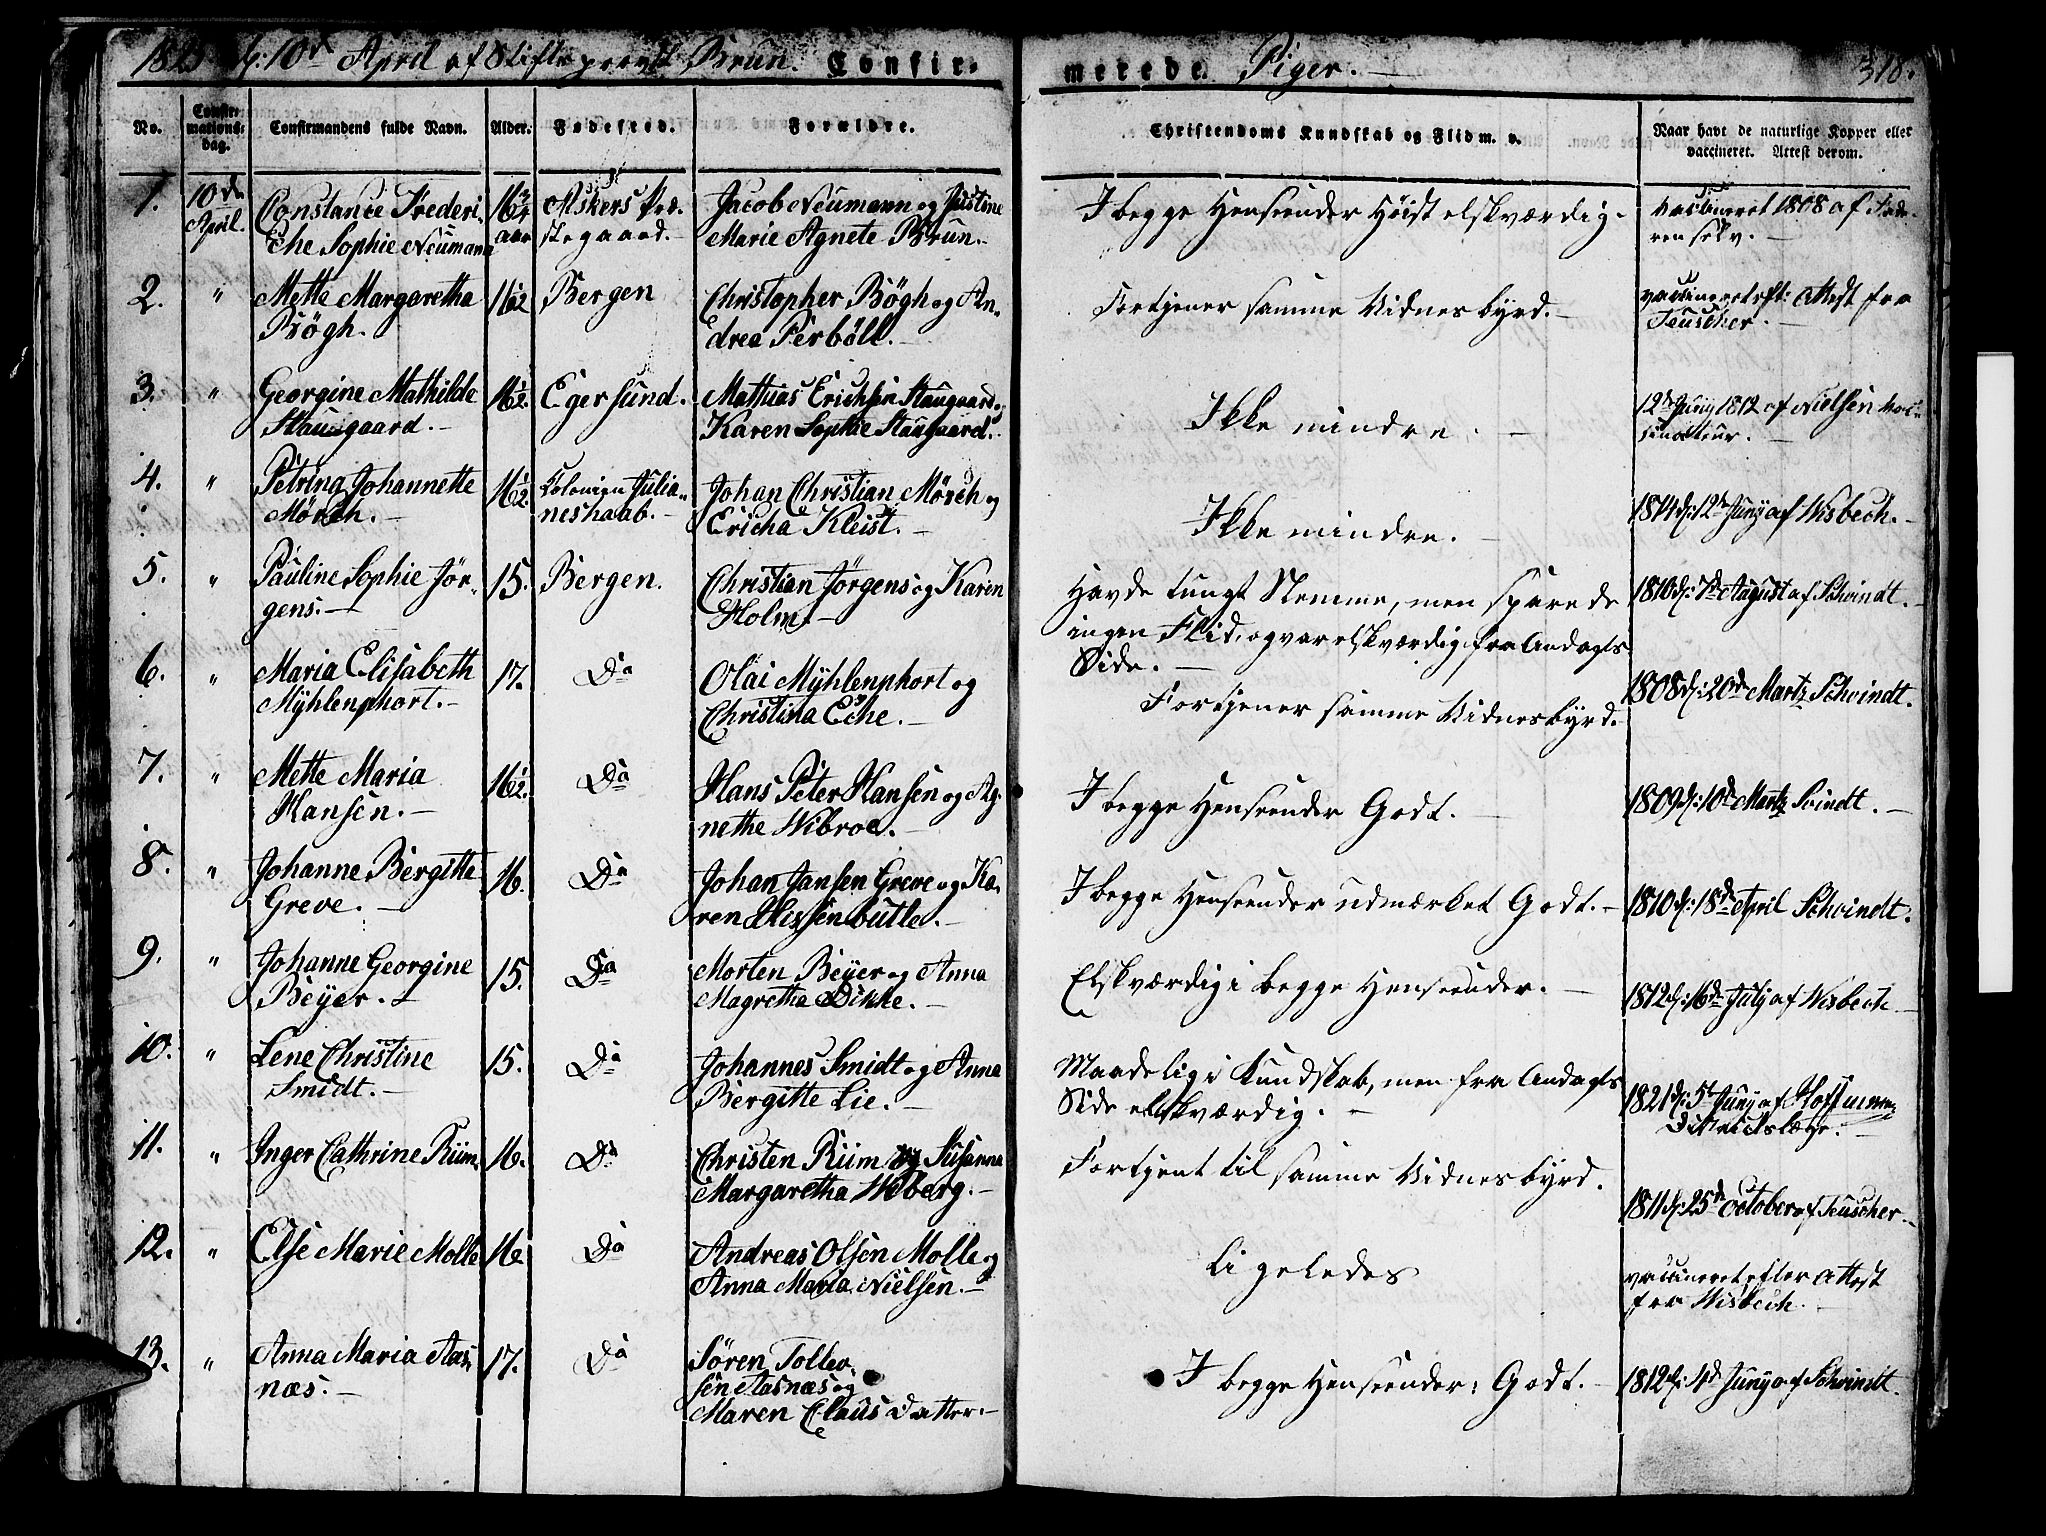 d: 10de April af Stiftsprovst Brun. Confir-
merede Piger. 318.
No. Confirmations-dag. Confirmandens fulde Navn. Alder. Fødested. Forældre. Christendoms Kundskab og Flid m. v. Naar havt de naturlige Kopper eller vaccineret. Attest derom.
1. 10de April. Constance Frederi-
che Sophie Neumann
aar
Askers Præ-
stegaard.
Jacob Neumann og Justine
Marie Agnete Brun.
I begge Henseender Høist elskværdig.
vaccineret 1808 af Fade-
ren selv.
2. " Mette Margaretha
Bøgh.
16½
Bergen
Christopher Bøgh og An-
drea Perbøll.
Fortjener samme Vidnesbyrd.
vaccineret eft: Attest fra
Teuscher.
3. " Georgine Mathilde
Stausgaard.
16½.
Egersund.
Mathias Erichsen Staugaard og
Karen Sophie Staugaard.
Ikke mindre.
12te Juny 1812 af Nielsen Vac-
sinateur.
4. " Petrina Johannette
Mörch.
16½.
Colonien Julia-
neshaab.
Johan Christian Mörch og
Ericha Kleist.
Ikke mindre.
1814 d: 12te Juny af Wisbech.
5. " Pauline Sophie Jör-
gens.
15.
Bergen.
Christian Jörgens og Karen
Holm.
Havde tungt Nemme, men sparede
ingen Flid, og var elskværdig fra Andagts
Side.
1810 d: 7de August af Schvindt.
6. " Maria Elisabeth
Mÿhlenphort.
17.
Do
Olai Mÿhlenphort og
Christina Eche.
Fortjener samme Vidnesbyrd.
1808 d: 20de Martz Schvindt.
7. " Mette Maria
Hansen.
16½.
Do
Hans Peter Hansen og Ag-
nethe Wibroe.
I begge Henseender Godt.
1809 d: 10de Martz Svindt.
8. " Johanne Bergitte
Greve.
16.
Do
Johan Jansen Greve og Ka-
ren
I begge Henseender udmærket Godt.
1810 d: 18de April Schvindt.
9. " Johanne Georgine
Beÿer.
15.
Do
Morten Beÿer og Anna
Magretha Dikke.
Elskværdig i begge Henseender.
1812 d: 16de July af Wisbech
10. " Lene Christine
Smidt.
15.
Do
Johannes Smidt og Anna
Bergitte Lie.
Maadelig i Kundskab, men fra Andagts
Side elskværdig.
1821 d: 5t Juny af Hoffmann
11. " Inger Cathrine Riim.
16.
Do
Christen Riim og Susanna
Margaretha Weberg.
Fortjent til samme Vidnesbyrd.
1811 d: 25de October af Teuscher.
12. " Else Marie Molle
16
Do
Andreas Olsen Molle og
Anna Maria Nielsen.
Ligeledes
vaccineret efter Attest
fra Wisbech.
13. " Anna Maria Aas-
næs.
17.
Do
Sören Tollev-
sen Aasnæs og
Maren Claus datter.
I begge Henseender: Godt.
1812 d: 4de Juny af Schvindt.